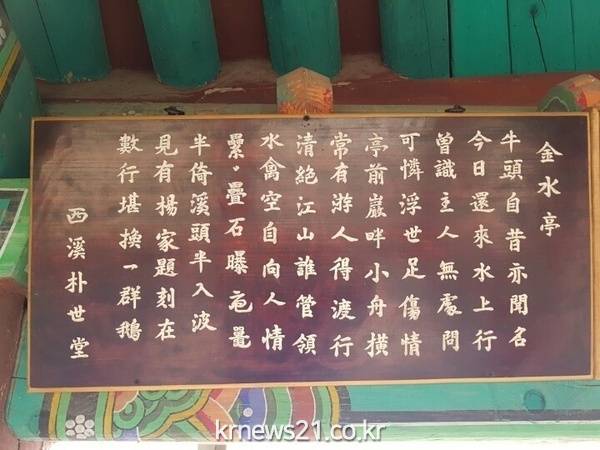 金水亭
牛頭自昔亦聞名
今日還來水上行
曾識主人無處問
可憐浮世足傷情
亭前巖畔小舟橫
常有游人得渡行
清絕江山誰管領
水禽空自向人情
纍〃疊石曝黿鼉
半倚溪頭半入波
見有楊家題刻在
數行堪換一群鵝
西溪朴世堂
krnews21.co.kr